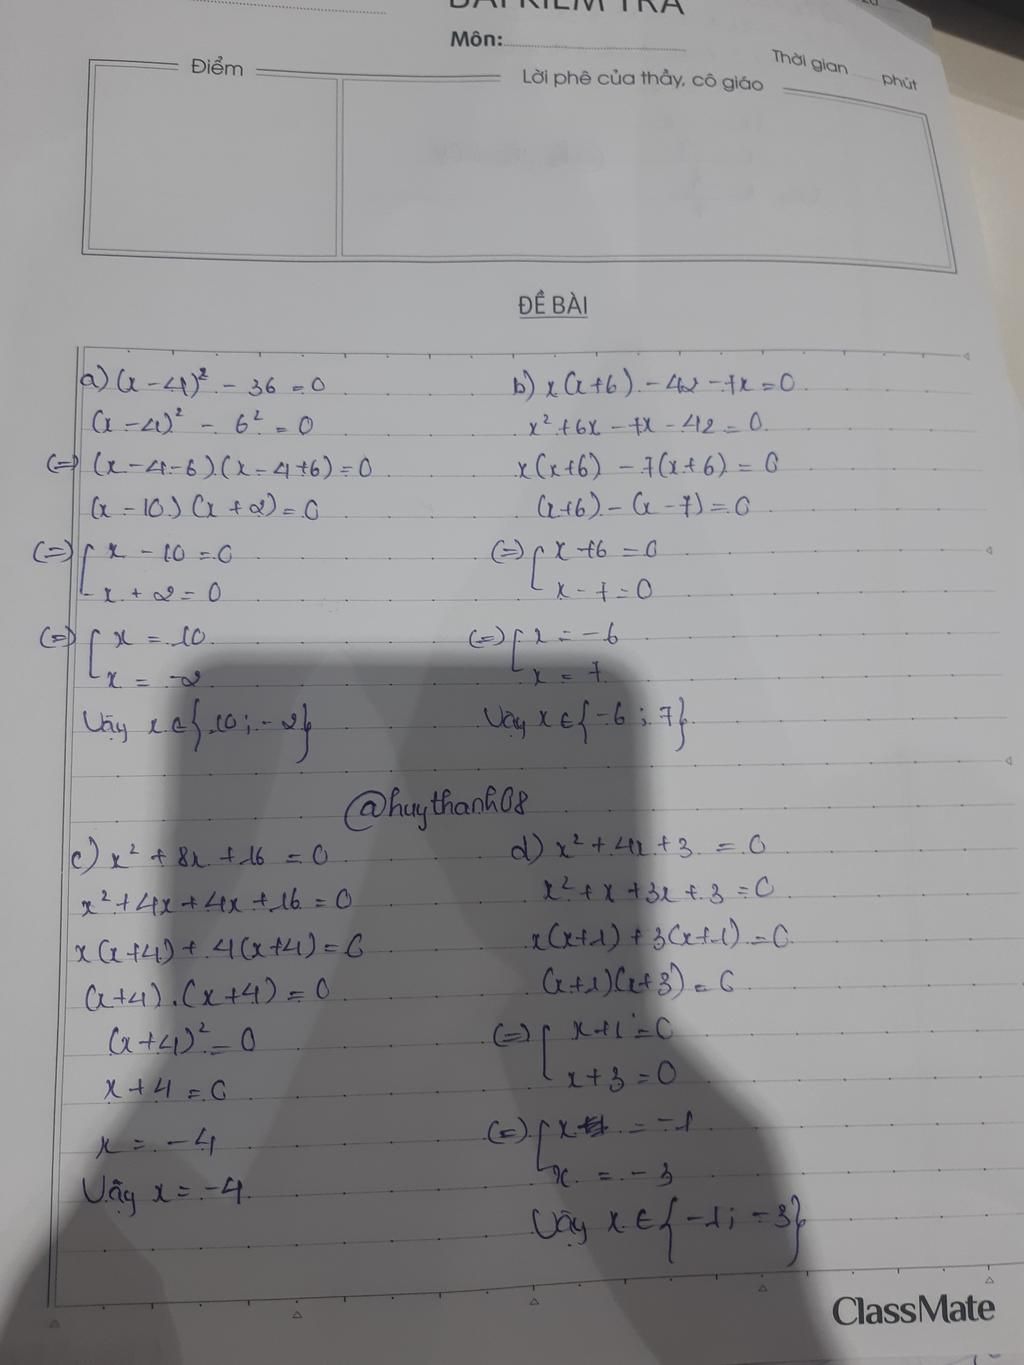 BÀI KIỂM TRA
Môn:
Thời gian phút
Điểm
Lời phê của thầy, cô giáo
ĐỀ BÀI
a) (x - 4)² - 36 = 0
(x - 4)² - 6² = 0
(=) (x - 4 - 6).(x - 4 + 6) = 0
(x - 10)(x + 2) = 0
(=) [ x - 10 = 0
x + 2 = 0
(=) [ x = 10
x = -2
Vậy x ∈ {10; -2}
b) x(x+6) - 42 - 7x = 0
x² + 6x - 7x - 42 = 0
x(x+6) - 7(x+6) = 0
(x+6) - (x - 7) = 0
(=) [ x + 6 = 0
x - 7 = 0
(=) [ x = -6
x = 7
Vậy x ∈ {-6; 7}
@huythanh08
c) x² + 8x + 16 = 0
x² + 4x + 4x + 16 = 0
x(x+4) + 4(x+4) = 0
(x+4).(x+4) = 0
(x+4)² = 0
x + 4 = 0
x = -4
Vậy x = -4
d) x² + 4x + 3 = 0
x² + x + 3x + 3 = 0
x(x+1) + 3(x+1) = 0
(x+1)(x+3) = 0
(=) [ x+1 = 0
x+3 = 0
(=) [ x = -1
x = -3
Vậy x ∈ {-1; -3}
ClassMate